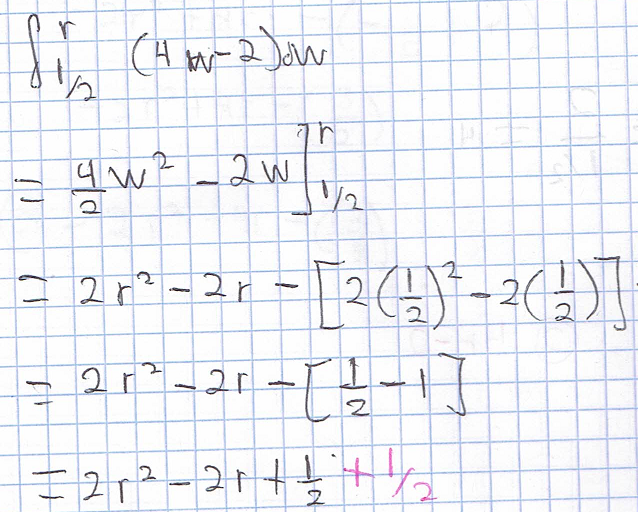 ∫_{1/2}^{r} (4w-2)dw
= 4/2 w² - 2w]_{1/2}^{r}
= 2r² - 2r - [2(1/2)² - 2(1/2)]
= 2r² - 2r - [1/2 - 1]
= 2r² - 2r + 1/2 + 1/2